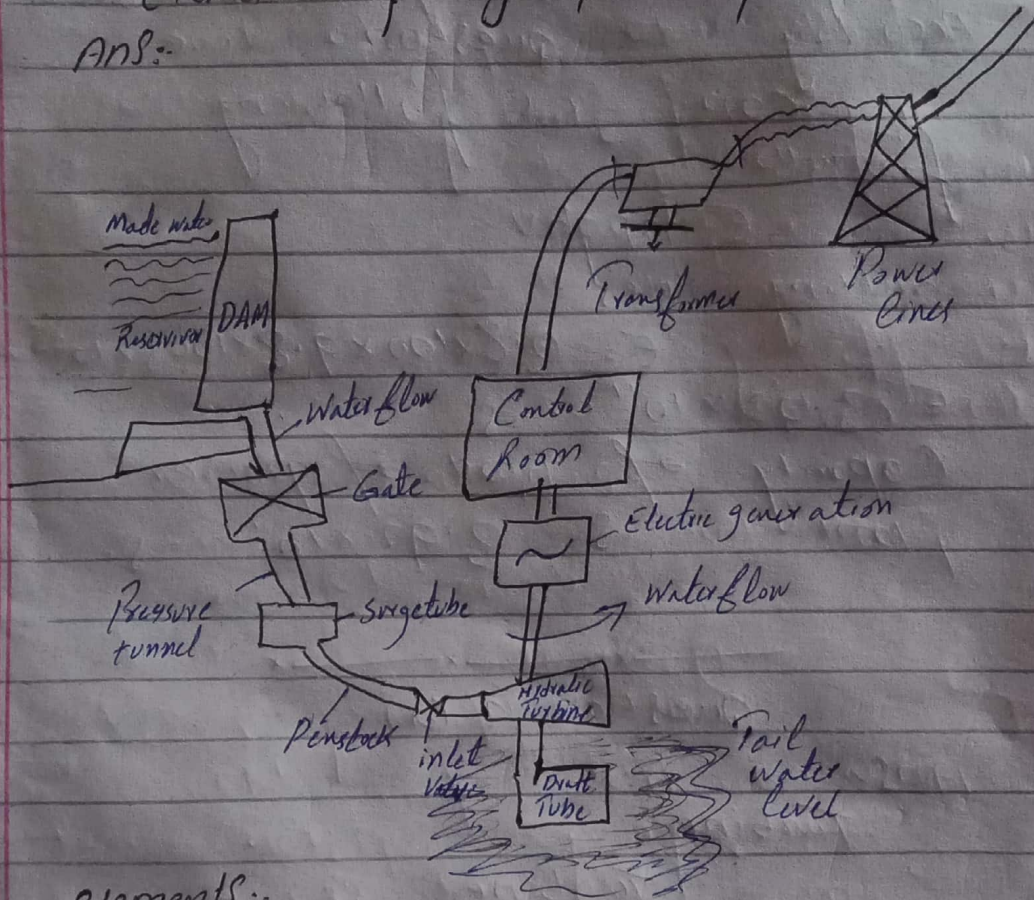 Ans:-
Made water
Reservivor
DAM
Waterflow
Gate
Pressure
tunnel
Surgetube
Penstock
inlet
Hydralic
Turbine
Draft
Tube
Tail
Water
level
Waterflow
Electric generation
Control
Room
Transformer
Power
lines